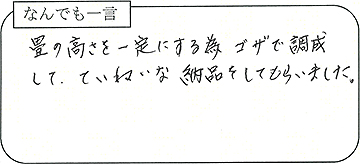 なんでも一言
畳の高さを一定にする為 ゴザで調成
して、ていねいな 納品をしてもらいました。